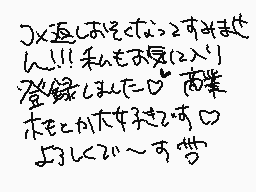 コメ返しおそくなってすみませ
ん!!! 私もお気に入り
登録しました♡ 商業
ホモとか大好きです♡
よろしくで〜す